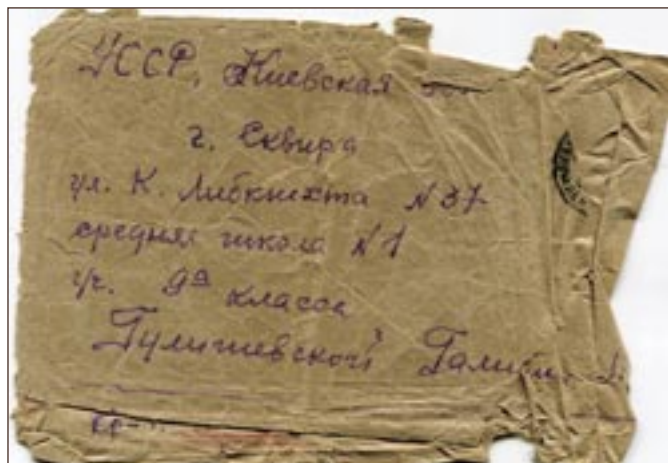 УССР, Киевская
г. Сквира
ул. К. Либкнехта N 37
средняя школа N 1
уч. 9а класса
Гулишевской